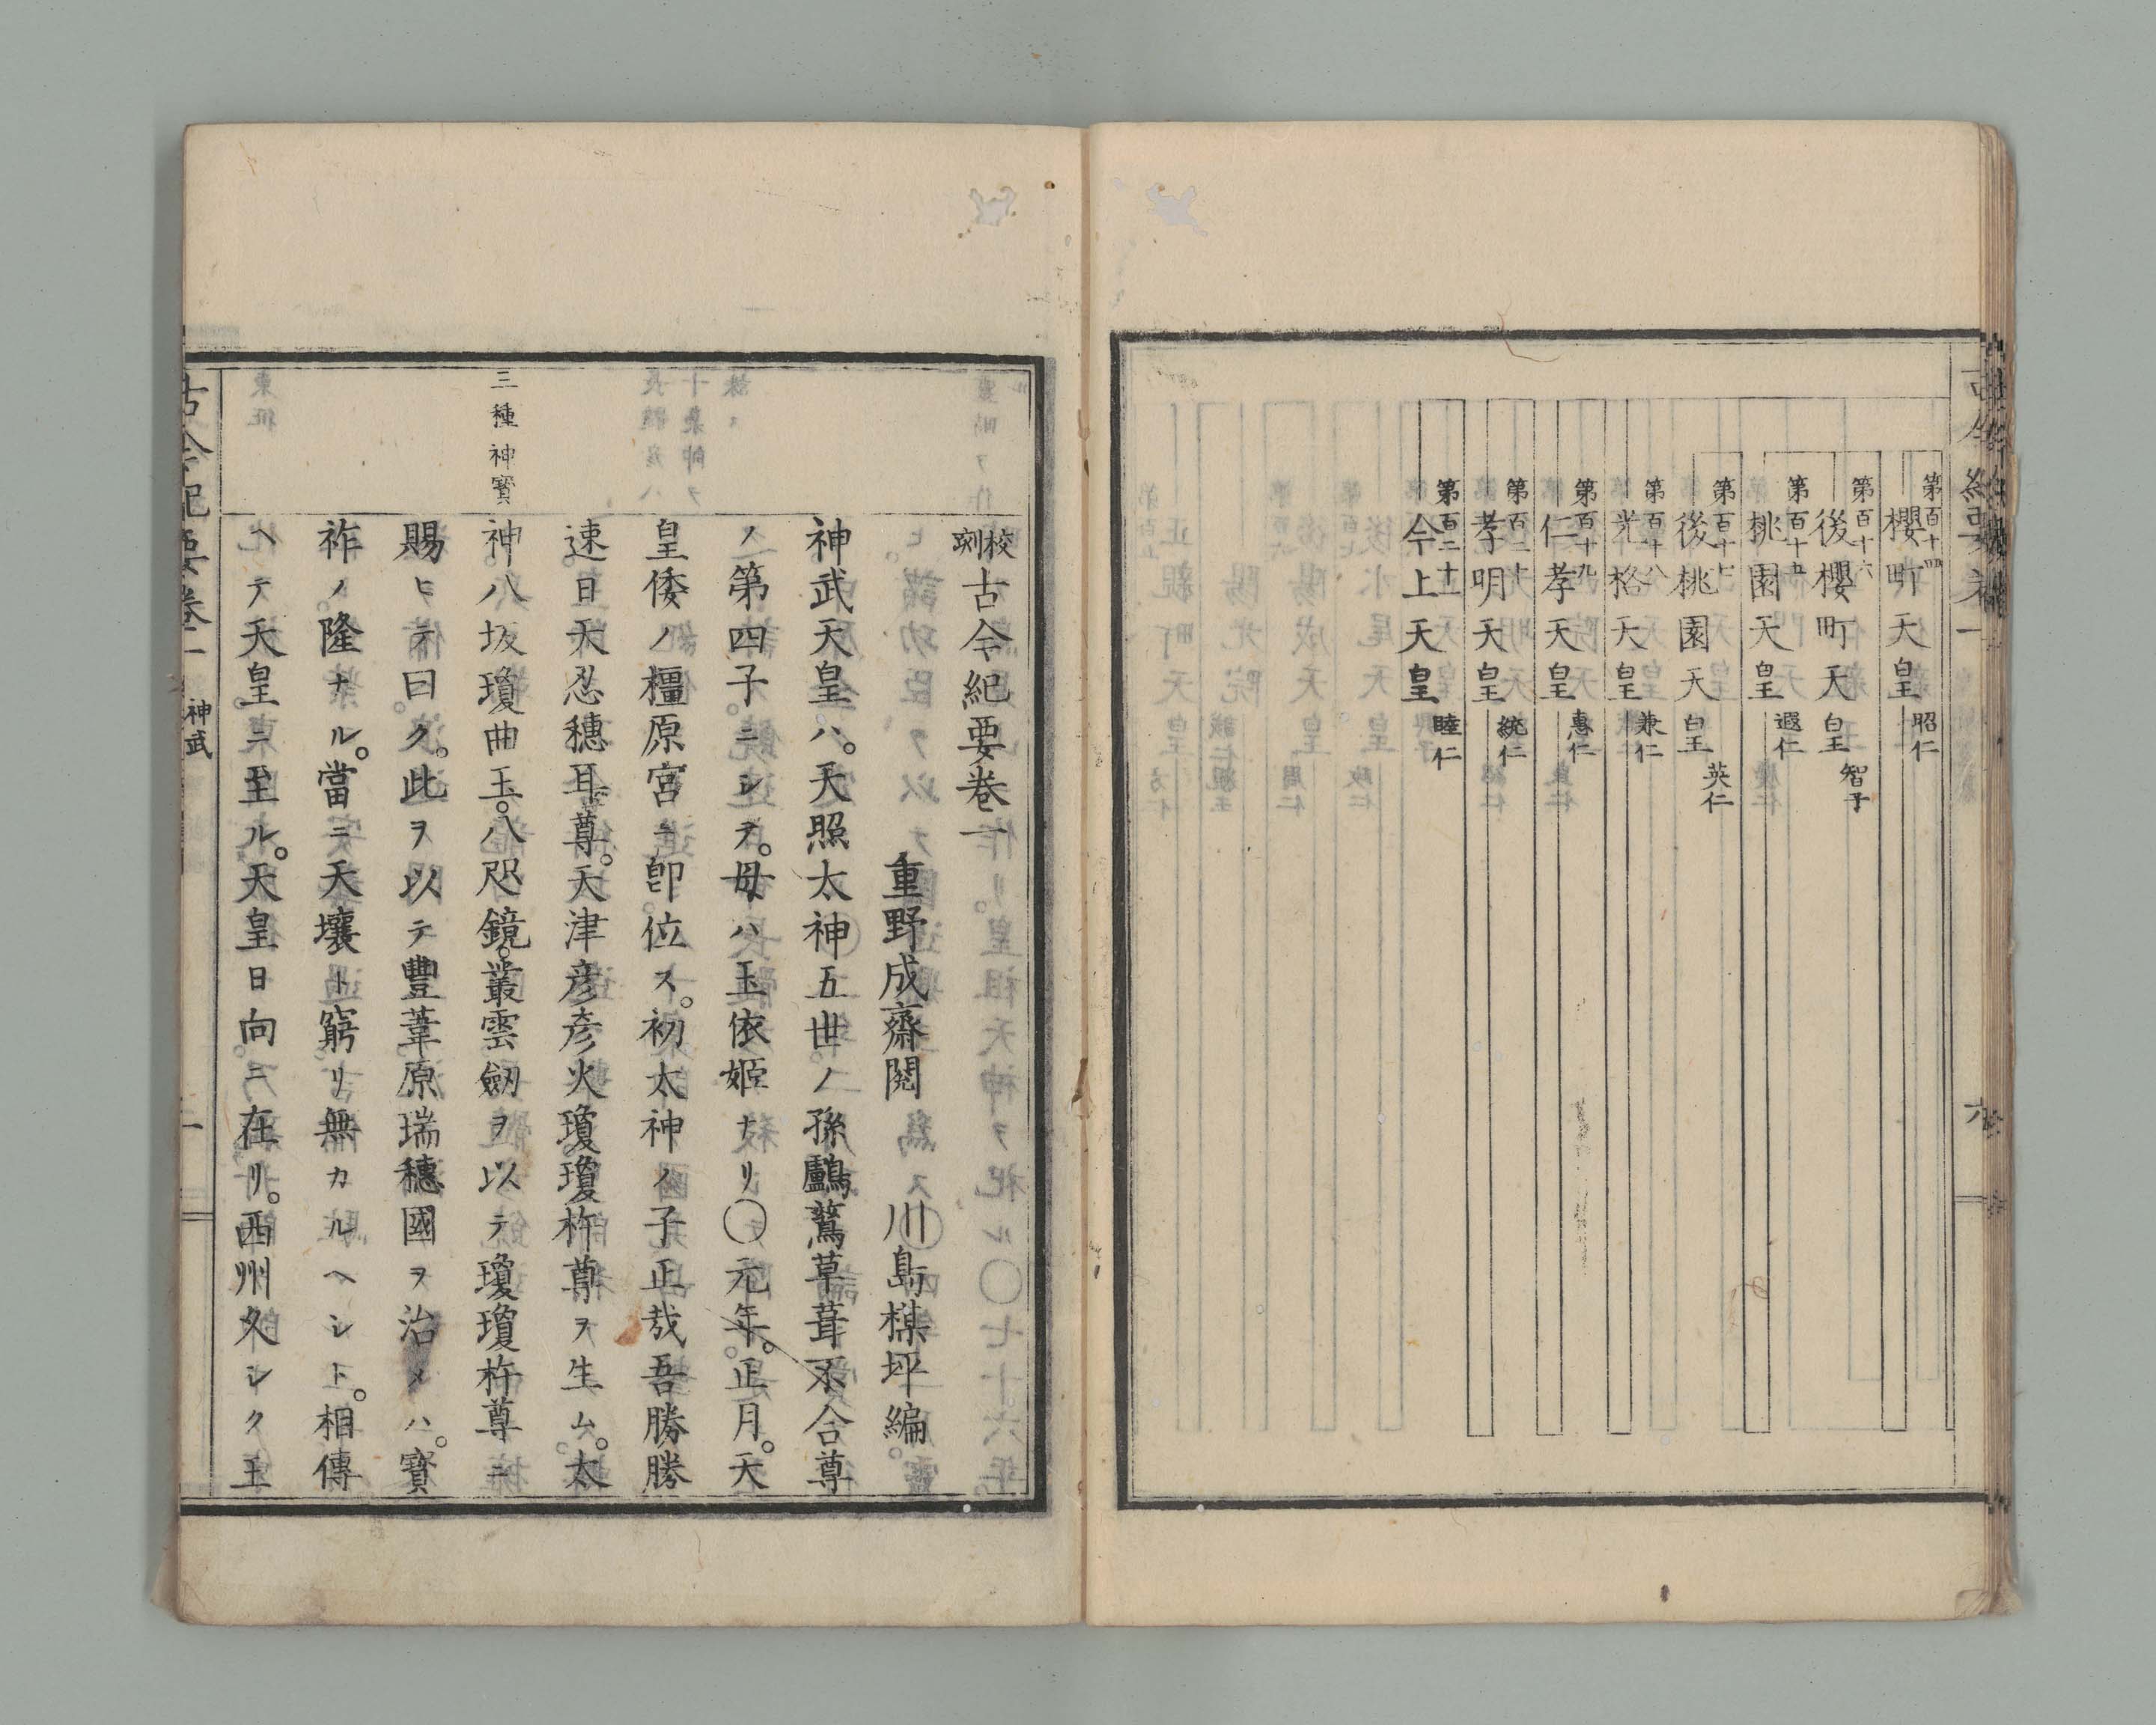 第百十四
櫻町天皇 昭仁
第百十六
後櫻町天皇 智子
第百十五
桃園天皇 遐仁
第百十七
後桃園天皇 英仁
第百十八
光格天皇 兼仁
第百十九
仁孝天皇 惠仁
第百二十
孝明天皇 統仁
第百二十一
今上天皇 睦仁
六
校刻古今紀要卷一
重野成齋閱 川島楳坪編
神武天皇ハ。天照太神五世ノ孫鸕鶿草葺不合尊
ノ第四子ニシテ。母ハ玉依姬ナリ〇元年。正月。天
皇倭ノ橿原宮ニ卽位ス。初太神ノ子正哉吾勝勝
速日天忍穗耳尊。天津彦彦火瓊瓊杵尊ヲ生ム。太
三種神寶
神八坂瓊曲玉。八咫鏡。叢雲劔ヲ以テ瓊瓊杵尊ニ
賜ヒテ曰ク。此ヲ以テ豐葦原瑞穗國ヲ治メハ。寶
祚ノ隆ナル。當ニ天壤ト窮リ無カルヘシト。相傳
ヘテ天皇ニ至ル。天皇日向ニ在リ。西州久シク王
古今紀要卷一 神武 一